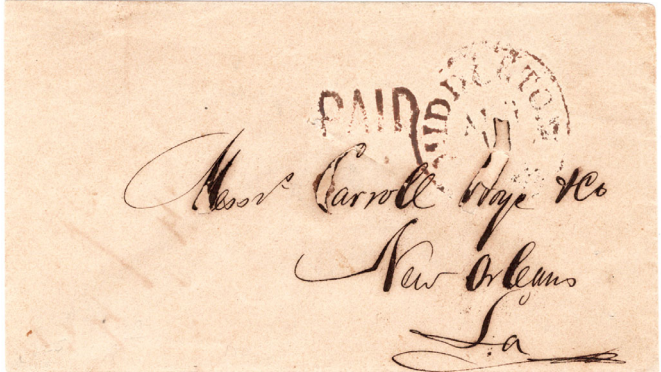 PAID
MIDDLETON
Messrs Carroll Hoye & Co
New Orleans
La